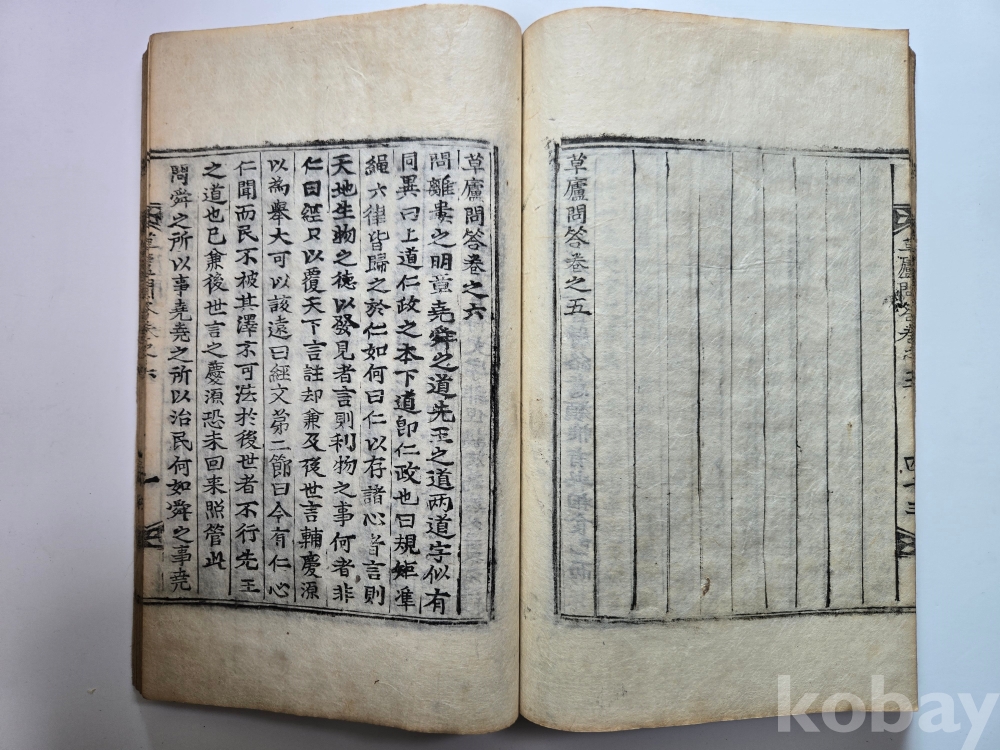 草廬問答卷之五
草廬問答卷之五
四十三
草廬問答卷之六
問離婁之明章堯舜之道先王之道两道字似有
同異曰上道仁政之本下道卽仁政也曰規矩準
繩六律皆歸之於仁如何曰仁以存諸心者言則
天地生物之德以發見者言則利物之事何者非
仁曰經只以覆天下言註却兼及後世言輔慶源
以為舉大可以該遠曰經文第二節曰今有仁心
仁聞而民不被其澤不可法於後世者不行先王
之道也已兼後世言之慶源恐未回来照管此
問舜之所以事堯堯之所以治民何如舜之事堯
草廬問答卷之六
一
kobay